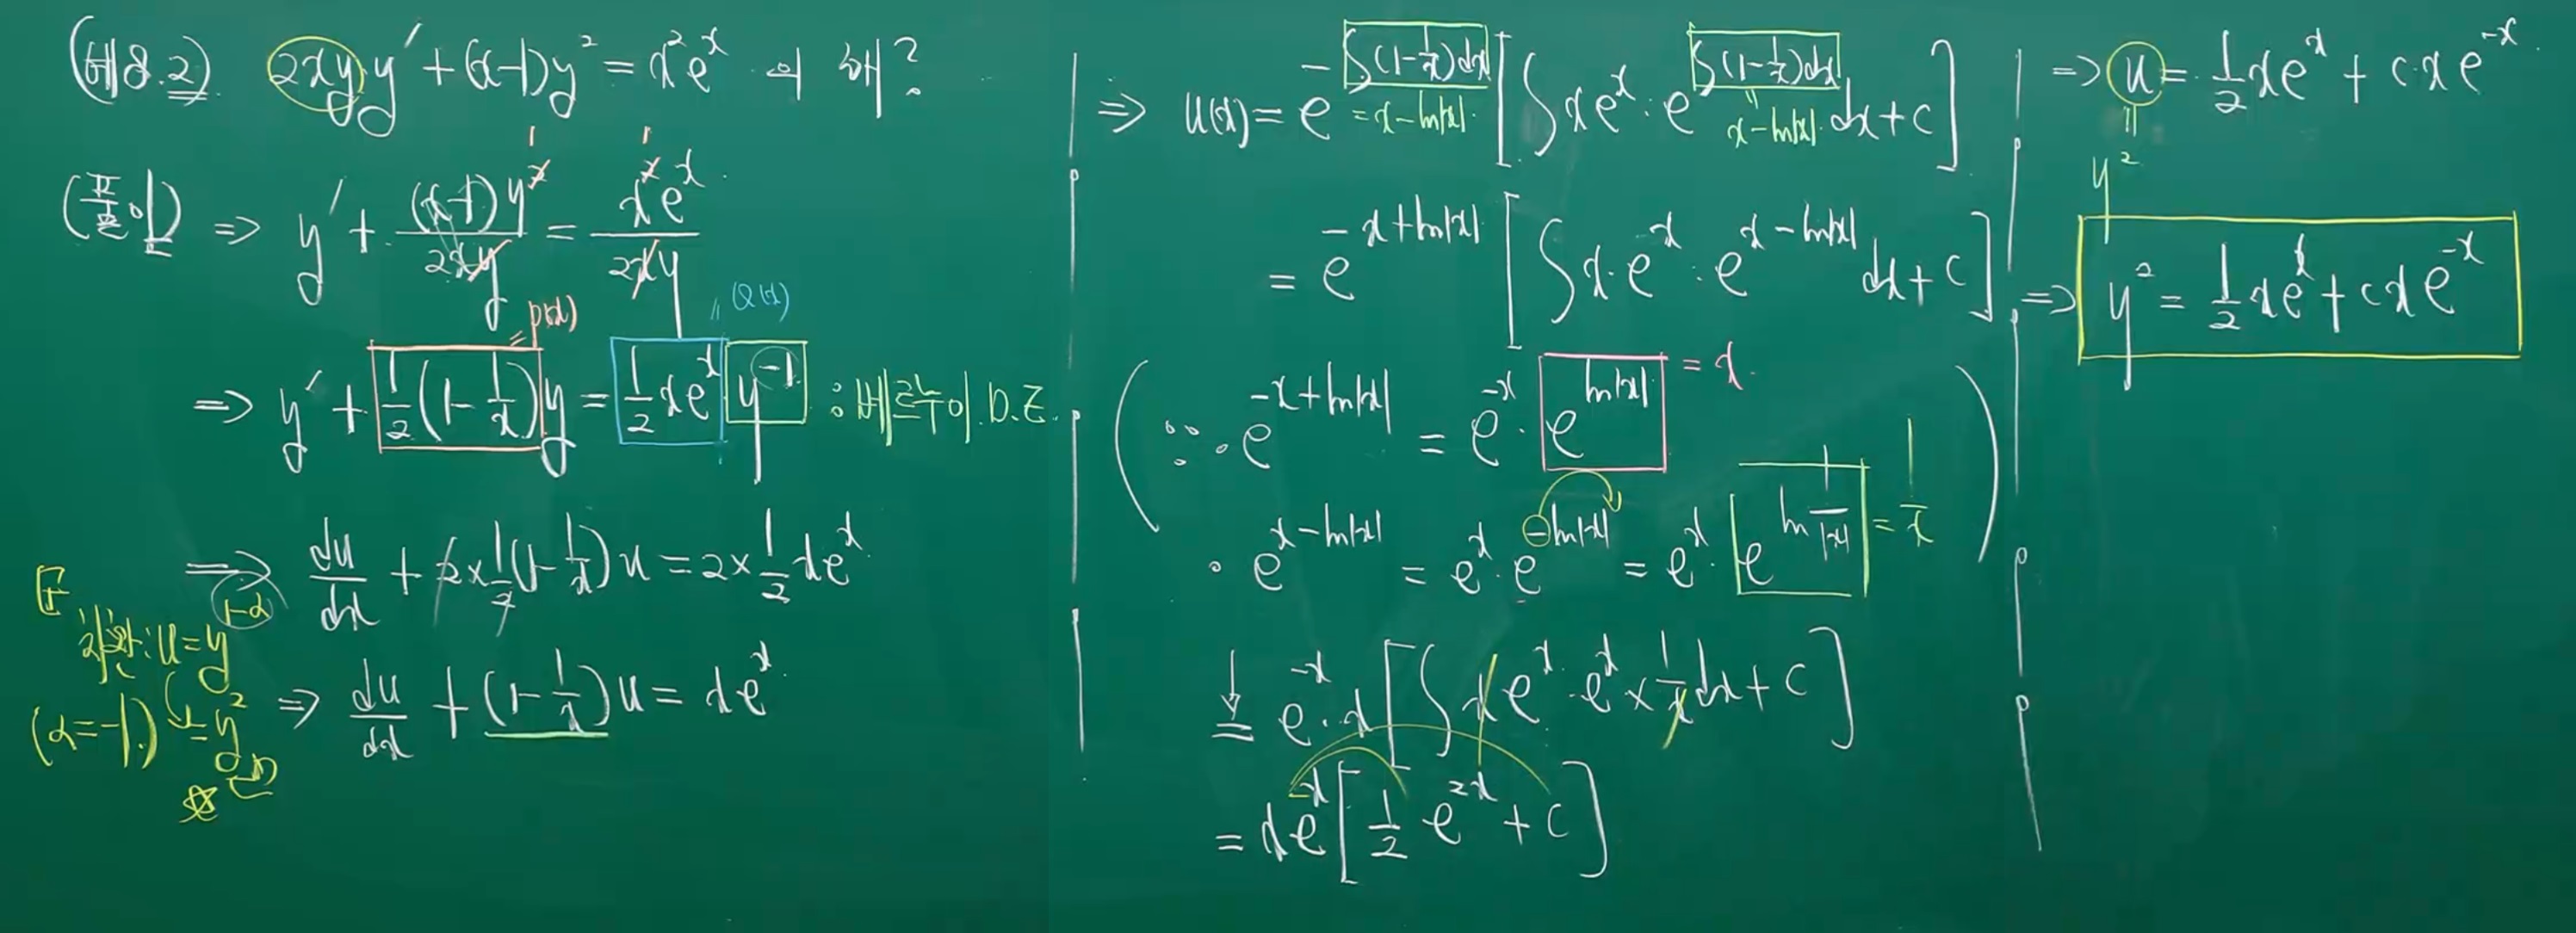 (예8.2) 2xyy′ + (x-1)y² = x²eˣ 의 해?
(풀이) ⇒ y′ + (x-1)y²/2xy = x²eˣ/2xy
= p(x) = Q(x)
⇒ y′ + 1/2(1-1/x)y = 1/2 xeˣ y⁻¹ : 베르누이 D.E.
⇒ du/dx + 2×1/2(1-1/x)u = 2×1/2 xeˣ
치환: u = y^(1-α)
(α=-1.) = y²
⇒ du/dx + (1-1/x)u = xeˣ
⇒ u(x) = e^(-∫(1-1/x)dx) [∫xeˣ·e^(∫(1-1/x)dx) dx + c]
= x-ln|x| x-ln|x|
= e^(-x+ln|x|) [∫x·eˣ·e^(x-ln|x|) dx + c]
(∵ · e^(-x+ln|x|) = e⁻ˣ·e^(ln|x|) = x
· e^(x-ln|x|) = eˣ·e^(-ln|x|) = eˣ·e^(ln 1/|x|) = 1/x)
= e⁻ˣ·x[∫xeˣ·eˣ×1/x dx + c]
= xe⁻ˣ[1/2 e²ˣ + c]
⇒ u = 1/2 xeˣ + c·xe⁻ˣ
= y²
⇒ y² = 1/2 xeˣ + cxe⁻ˣ